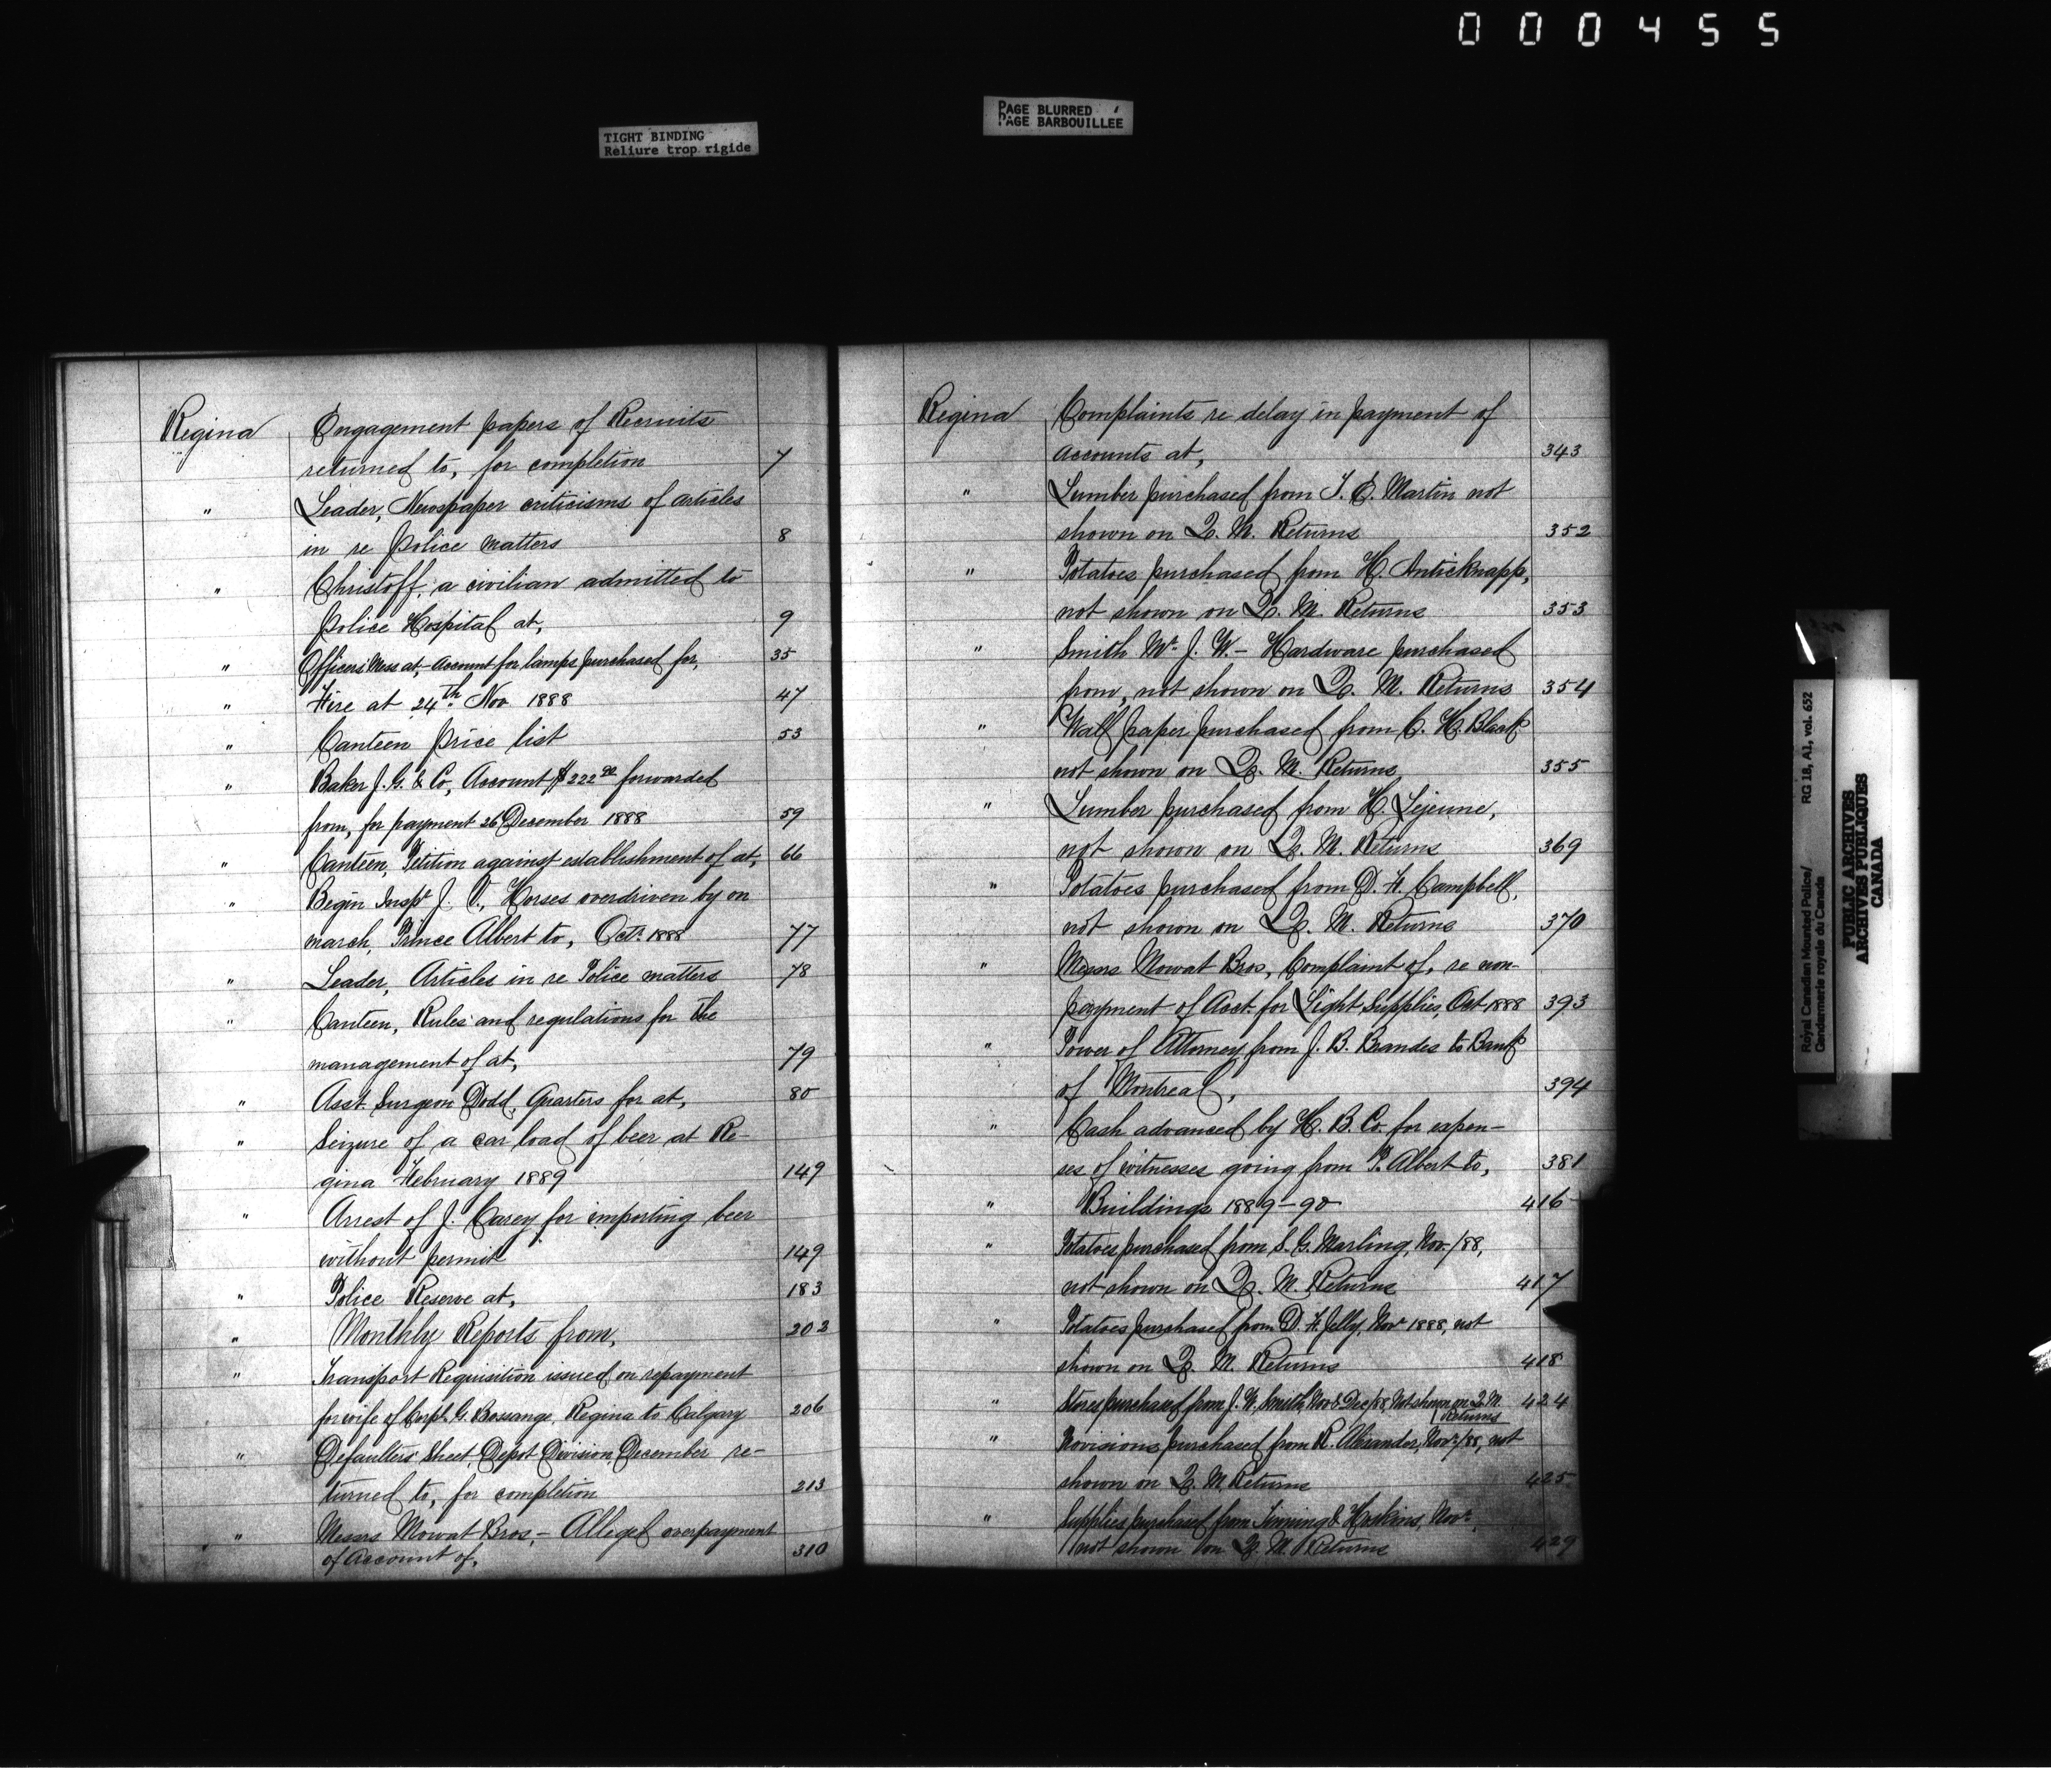 000455
TIGHT BINDING
Reliure trop rigide
PAGE BLURRED
PAGE BARBOUILLÉE
Regina Engagement papers of Recruits
returned to, for completion 7
" Leader, Newspaper criticisms of articles
in re Police matters 8
" Christoff, a civilian admitted to
Police Hospital at, 9
" Officers Mess at, - Account for lamps purchased for, 35
" Fire at 24th Nov 1888 47
" Canteen Price list 53
" Baker J. G. & Co, Account $222 90 forwarded
from, for payment 26 December 1888 59
" Canteen, Petition against establishment of at, 66
" Begin Inspr J. V., Horses overdriven by on
march, Prince Albert to, Octr 1888 77
" Leader, Articles in re Police matters 78
" Canteen, Rules and regulations for the
management of at, 79
" Asst Surgeon Dodd, Quarters for at, 80
" Seizure of a car load of beer at Re-
gina February 1889 149
" Arrest of J. Carey for importing beer
without permit 149
" Police Reserve at, 183
" Monthly Reports from, 202
" Transport Requisition issued on repayment
for wife of Corpl G. Bossange, Regina to Calgary 206
" Defaulters Sheet, Depot Division, December re-
turned to, for completion 213
" Messrs Mowat Bros, - Alleged overpayment
of Account of, 310
Regina Complaints re delay in payment of
accounts at, 343
" Lumber purchased from T. E. Martin not
shown on Q. M. Returns 352
" Potatoes purchased from H. Anticknapp,
not shown on Q. M. Returns 353
" Smith Mr J. W. - Hardware purchased
from, not shown on Q. M. Returns 354
" Wall paper purchased from C. H. Black
not shown on Q. M. Returns 355
" Lumber purchased from H. Lejeune,
not shown on Q. M. Returns 369
" Potatoes purchased from D. H. Campbell,
not shown on Q. M. Returns 370
" Messrs Mowat Bros, Complaint of, re non-
payment of Acct. for Light Supplies, Oct 1888 393
" Power of Attorney from J. B. Brandes to Bank
of Montreal, 394
" Cash advanced by H. B. Co. for expen-
ses of witnesses going from P. Albert to, 381
" Buildings 1889-90 416
" Potatoes purchased from S. G. Marling, Nov./88,
not shown on Q. M. Returns 417
" Potatoes purchased from D. H. Jelly, Novr 1888, not
shown on Q. M. Returns 418
" Stores purchased from J. W. Smith, Nov & Dec/88, Not shown on Q. M. 424
Returns
" Provisions purchased from R. Alexander, Novr/88, not
shown on Q. M. Returns 425
" Supplies purchased from Tinning & Hoskins, Novr,
not shown on Q. M. Returns 429
Royal Canadian Mounted Police/ RG 18, A1, vol. 652
Gendarmerie royale du Canada
PUBLIC ARCHIVES
ARCHIVES PUBLIQUES
CANADA